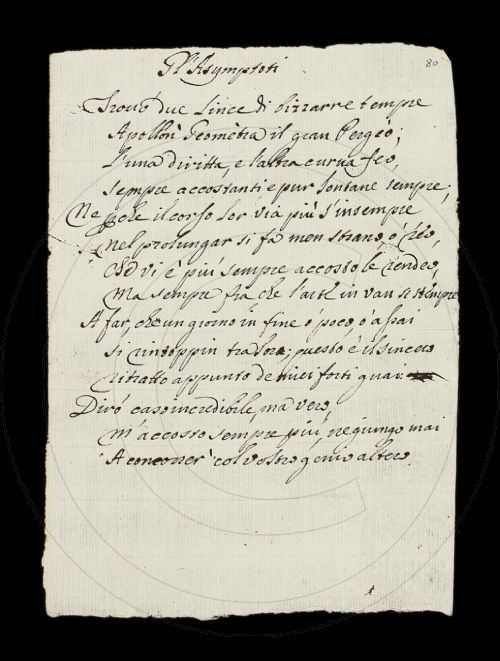 Gl'Asymptoti
80
Trovò due Linee di bizzarre tempre
Apollon' Geomètra il gran Pergeo;
L'una diritta, e l'altra curva feo,
Sempre accostanti e pur lontane sempre;
Ne il corso lor via più s'insempre
Nel prolungar si fa men strano, ò reo,
Ch'ad vi è più sempre accosto le rendeo,
Ma sempre fia che l'arte in van si stempre
A far, che un giorno in fine ò poco ò assai
Si rintoppin tra loro; questo è il sincero
ritratto appunto de miei forti guai:
Dirò caso incredibile, ma vero,
m'accosto sempre più, ne giungo mai
A concorrer' col vostro genio altero.